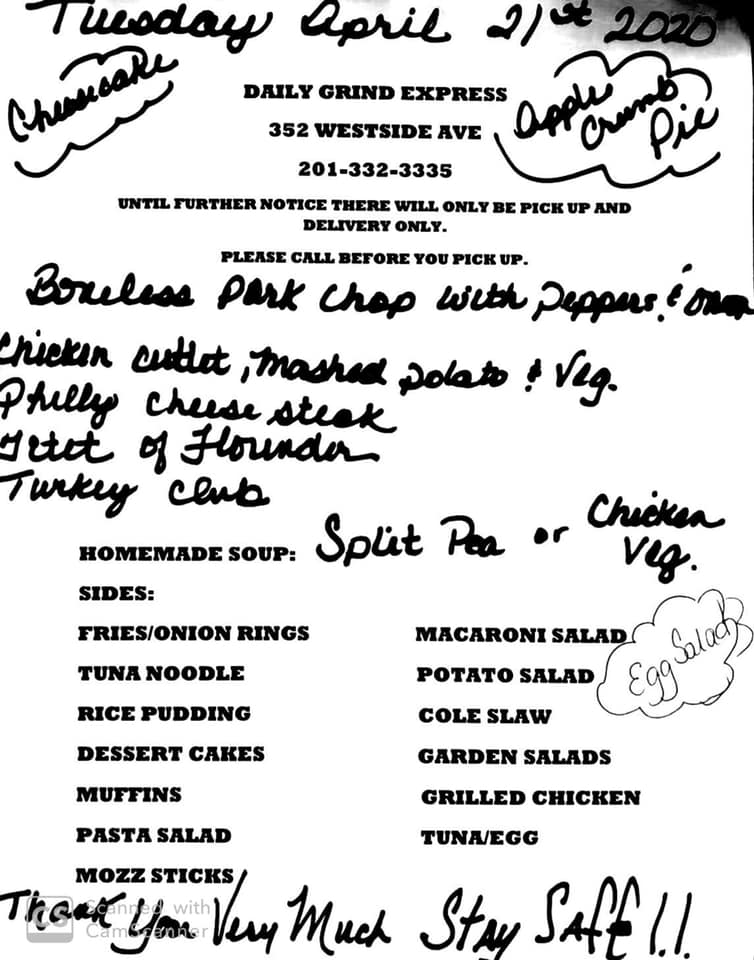 Tuesday April 21st 2020
Cheesecake
Apple Crumb Pie
DAILY GRIND EXPRESS
352 WESTSIDE AVE
201-332-3335
UNTIL FURTHER NOTICE THERE WILL ONLY BE PICK UP AND
DELIVERY ONLY.
PLEASE CALL BEFORE YOU PICK UP.
Boneless Pork Chop with peppers & onion
Chicken cutlet, mashed potato & Veg.
Philly cheese steak
Filet of Flounder
Turkey club
HOMEMADE SOUP: Split Pea or Chicken Veg.
SIDES:
FRIES/ONION RINGS MACARONI SALAD
Egg Salad
TUNA NOODLE POTATO SALAD
RICE PUDDING COLE SLAW
DESSERT CAKES GARDEN SALADS
MUFFINS GRILLED CHICKEN
PASTA SALAD TUNA/EGG
MOZZ STICKS
Thank You Very Much Stay Safe!!
CS Scanned with
CamScanner